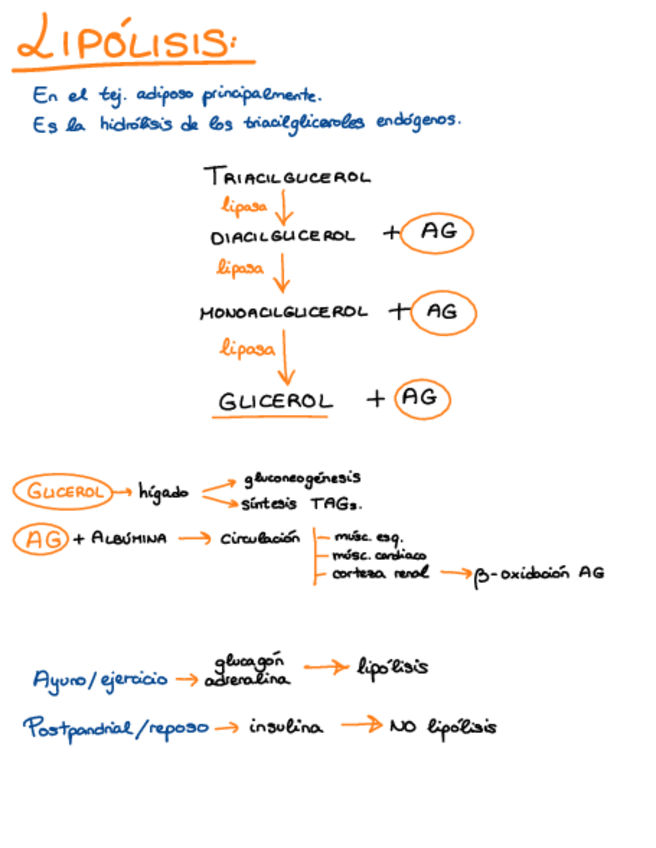 LIPÓLISIS:
En el tej. adiposo principalmente.
Es la hidrólisis de los triacilgliceroles endógenos.
TRIACILGLICEROL
lipasa
DIACILGLICEROL + AG
lipasa
MONOACILGLICEROL + AG
lipasa
GLICEROL + AG
GLICEROL → hígado → gluconeogénesis
→ síntesis TAGs.
AG + ALBÚMINA → circulación - músc. esq.
- músc. cardiaco
- corteza renal → β-oxidación AG
Ayuno/ejercicio → glucagón adrenalina → lipólisis
Postpandrial/reposo → insulina → NO lipólisis